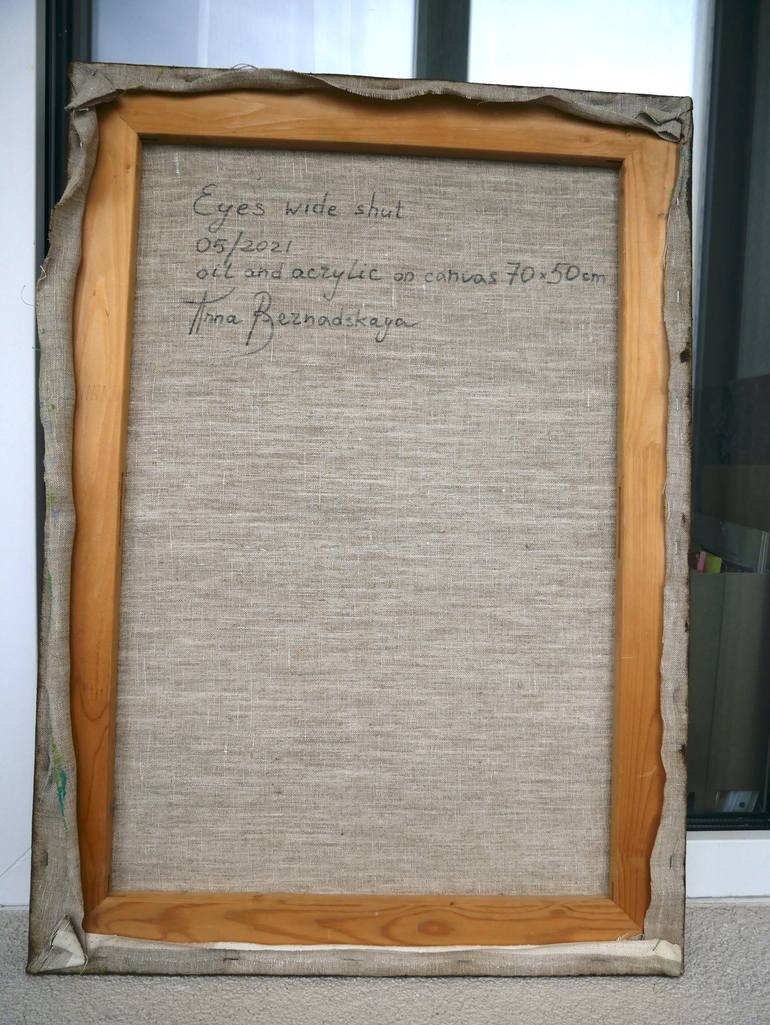 Eyes wide shut
05/2021
oil and acrylic on canvas 70×50cm
Anna Bernadskaya